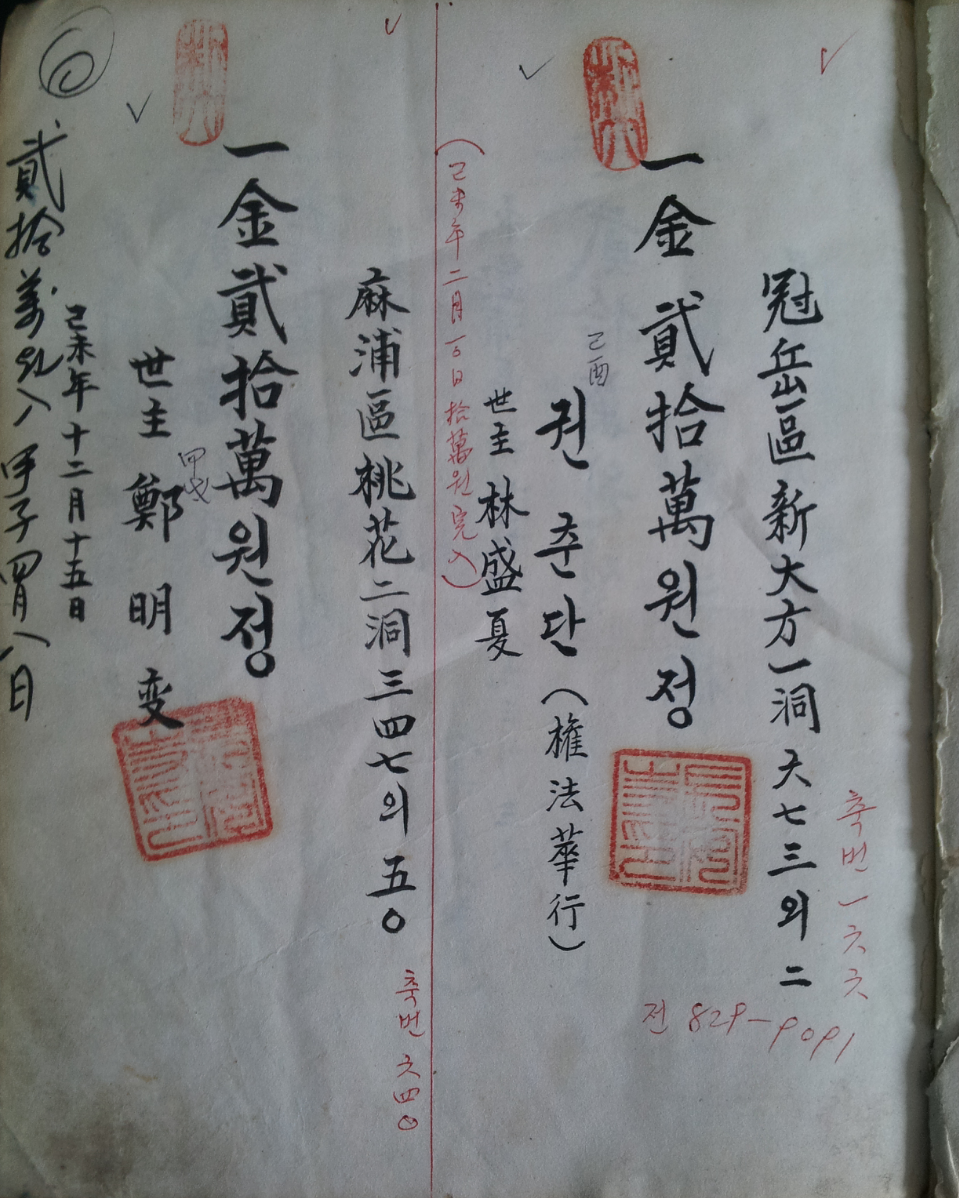 冠岳區新大方一洞六七三의二
축번一六六
전 829-9091
一金貳拾萬원정
己酉
권춘단(權法華行)
世主 林盛夏
(己未年二月一〇日拾萬원完入)
麻浦區桃花二洞三四七의五〇
축번六四〇
一金貳拾萬원정
甲戌
世主 鄭明变
己未年十二月十五日